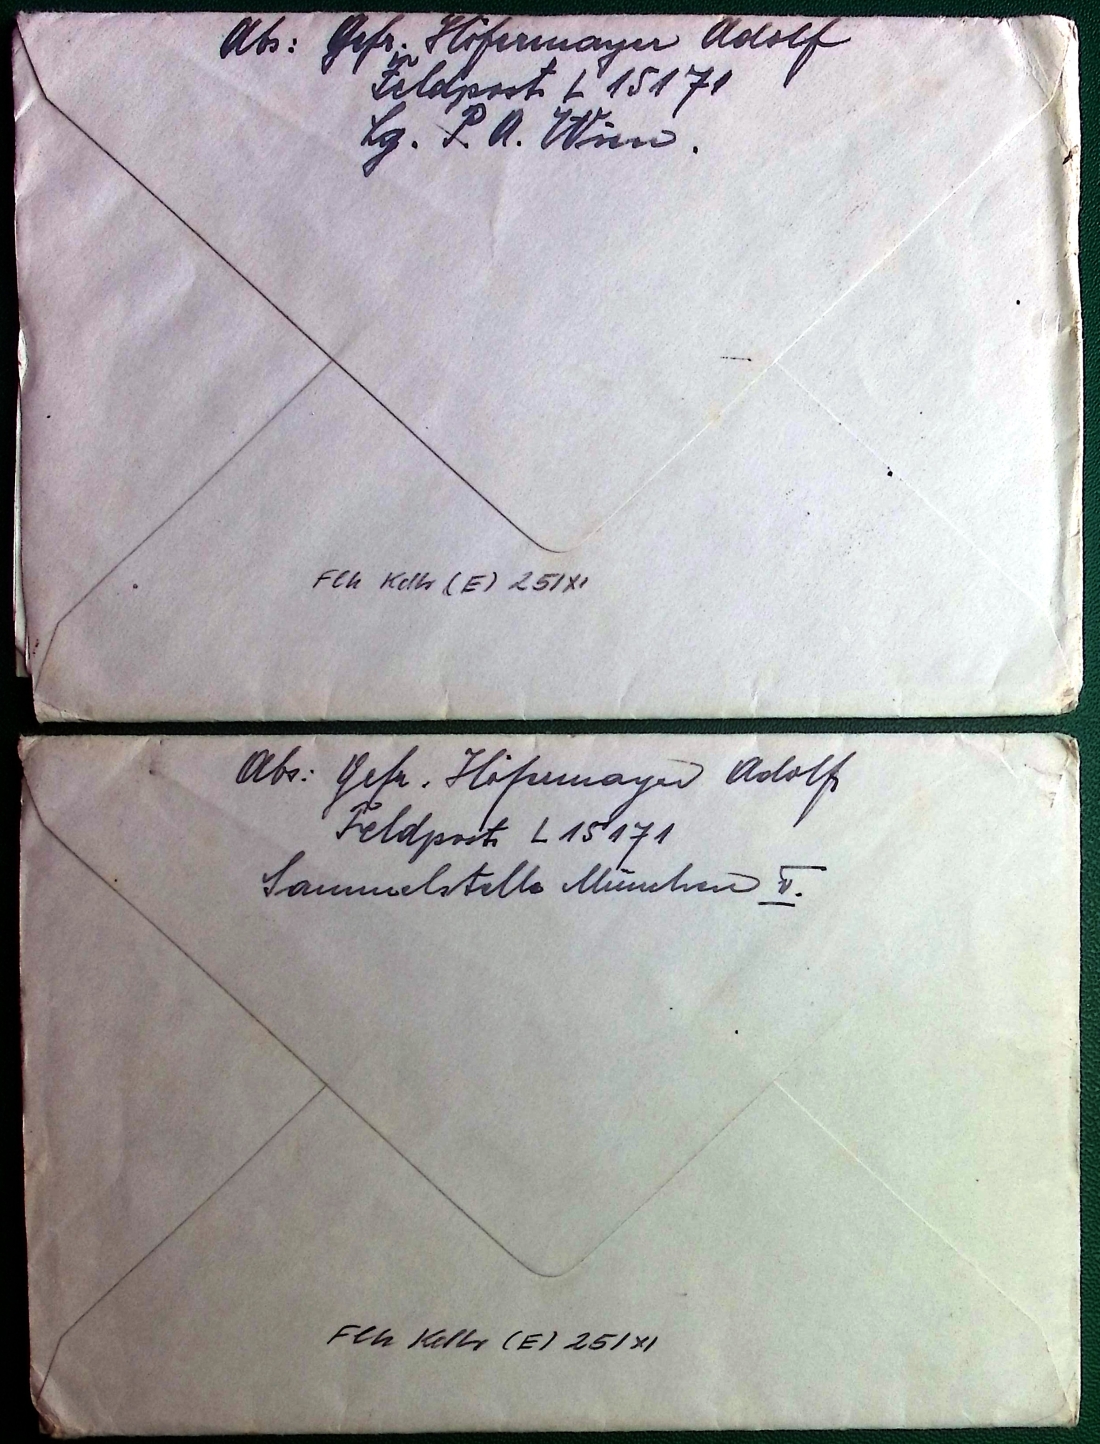 Abs: Gefr. Höfermayer Adolf
Feldpost L 15171
Lg. P. A. Wien.
Flh Kdtr (E) 25/XI
Abs: Gefr. Höfermayer Adolf
Feldpost L 15171
Sammelstelle München II.
Flh Kdtr (E) 25/XI